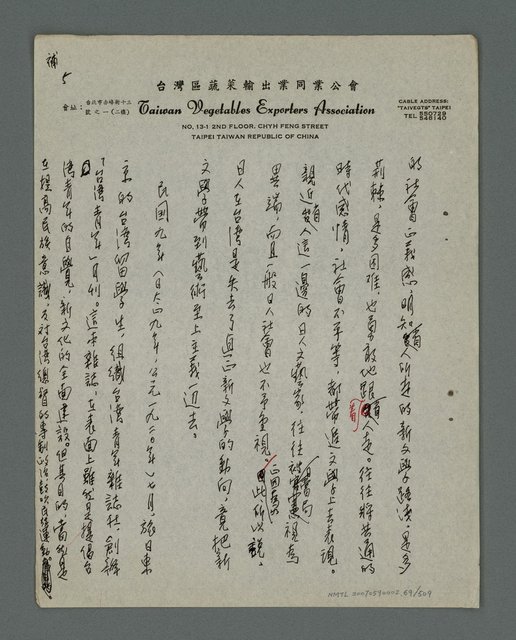 補5
台灣區蔬菜輸出業同業公會
會址：台北市赤峰街十三號之一(二樓)
Taiwan Vegetables Exporters Association
CABLE ADDRESS:
"TAIVEGTS" TAIPEI
TEL 550729
546140
NO. 13-1 2ND FLOOR. CHYH FENG STREET
TAIPEI TAIWAN REPUBLIC OF CHINA
的社會正義感，明知有人所走的新文學路淺，是多
荊棘，是多困难，也勇敢地跟有人走。往往將共通的
時代感情，社會不平等，都帶進文學上去表現。
親近有人這一邊的日人文藝家，往往被當局視為
異端，而且一般日人社會也不予重視。正因為此，所以說，
日人在台湾是失去了真正新文學的動向，竟把新
文學帶到藝術至上主義一边去。
民國九年（日大正九年，公元一九二〇年）七月，旅日東
京的台湾留學生，組織台湾青年雜誌社，創辦
「台湾青年」月刊。這本雜誌，在表面上雖然是提倡台
湾青年的自覺，新文化的全面建設。但其目的當然是
在提高民族意識，反对台湾總督的專制政治，鼓吹民族運動
NMTL 20070590002 69/509